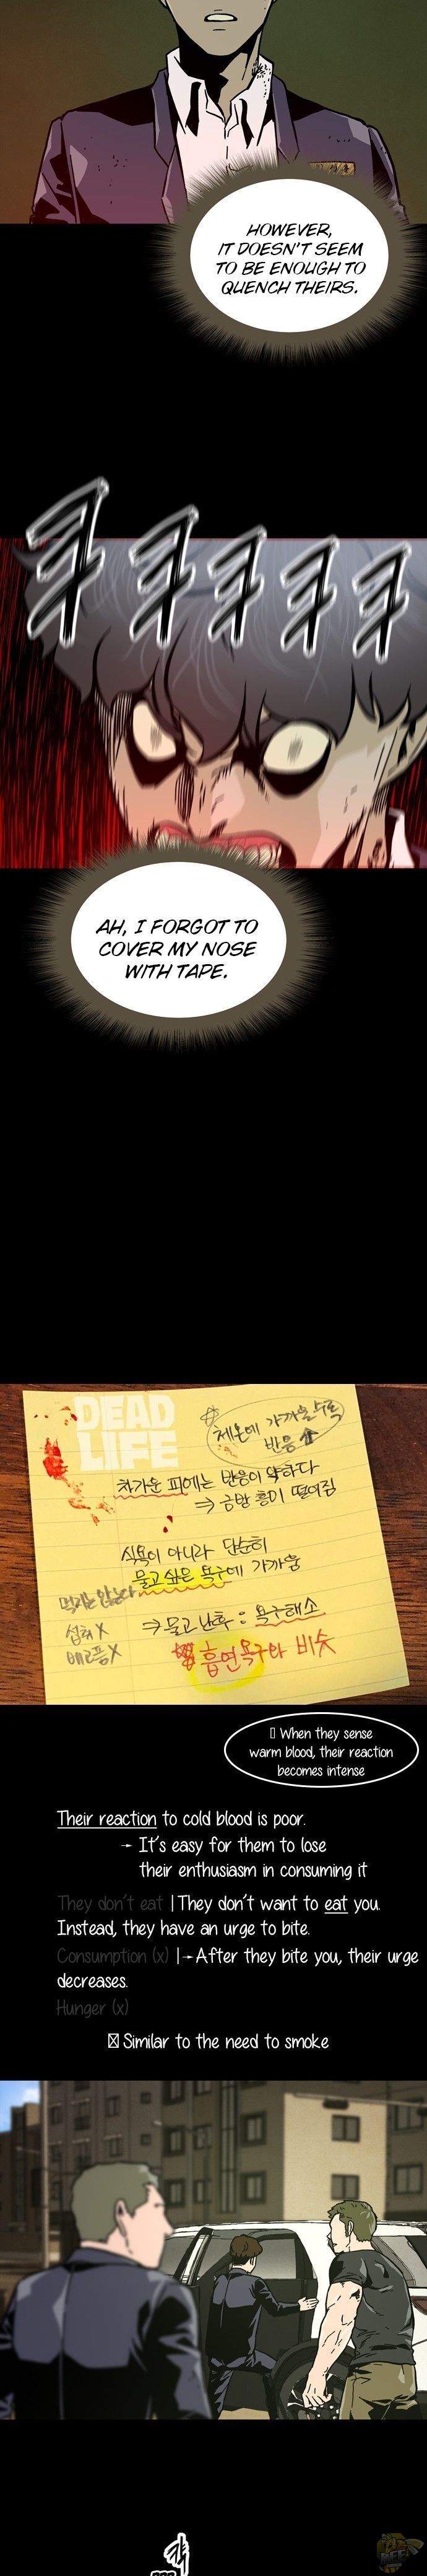 HOWEVER,
IT DOESN'T SEEM
TO BE ENOUGH TO
QUENCH THEIRS.
AH, I FORGOT TO
COVER MY NOSE
WITH TAPE.
DEAD
LIFE
체온에 가까울수록
반응↑
차가운 피에는 반응이 약하다
⇒ 금방 흥미 떨어짐
식욕이 아니라 단순히
물고 싶은 욕구에 가까움
먹지는 않는다
섭취 X
배고픔 X
⇒ 물고 난 후 : 욕구해소
흡연욕구와 비슷
When they sense
warm blood, their reaction
becomes intense
Their reaction to cold blood is poor.
→ It's easy for them to lose
their enthusiasm in consuming it
They don't eat | They don't want to eat you.
Instead, they have an urge to bite.
Consumption (x) | → After they bite you, their urge
decreases.
Hunger (x)
Similar to the need to smoke